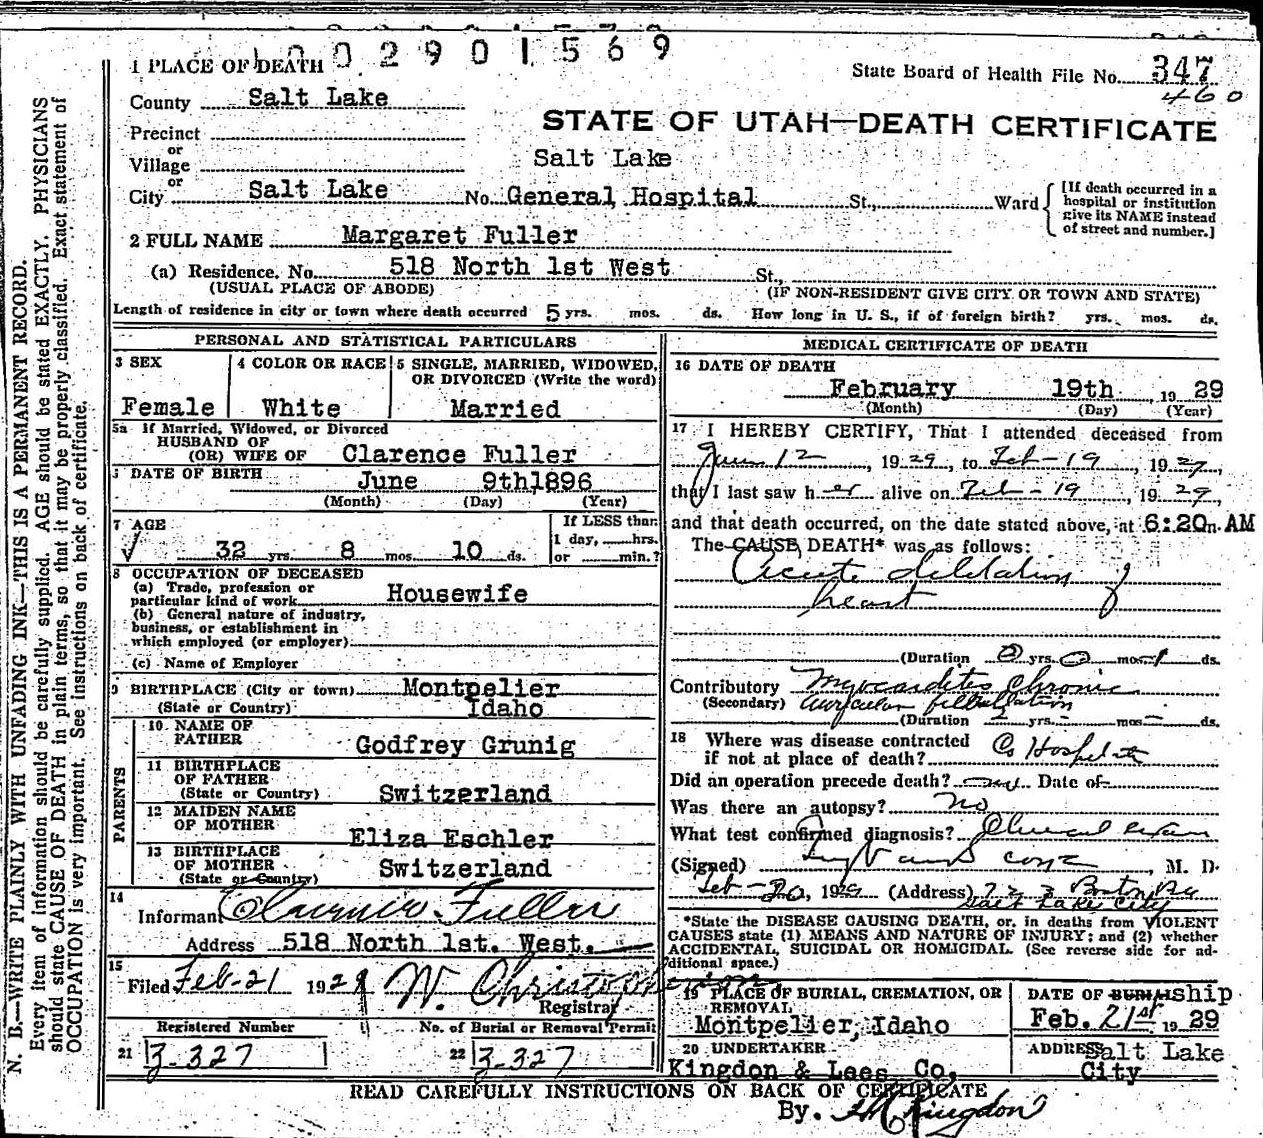 1 0 0 2 9 0 1 5 6 9
1 PLACE OF DEATH
State Board of Health File No. 347
460
County Salt Lake
STATE OF UTAH—DEATH CERTIFICATE
Precinct
or
Village
Salt Lake
or
City Salt Lake No. General Hospital St., Ward
[If death occurred in a hospital or institution give its NAME instead of street and number.]
2 FULL NAME Margaret Fuller
(a) Residence. No. 518 North 1st West St.,
(USUAL PLACE OF ABODE) (IF NON-RESIDENT GIVE CITY OR TOWN AND STATE)
Length of residence in city or town where death occurred 5 yrs. mos. ds. How long in U. S., if of foreign birth? yrs. mos. ds.
PERSONAL AND STATISTICAL PARTICULARS
3 SEX
Female
4 COLOR OR RACE
White
5 SINGLE, MARRIED, WIDOWED, OR DIVORCED (Write the word)
Married
5a If Married, Widowed, or Divorced
HUSBAND OF
(OR) WIFE OF Clarence Fuller
DATE OF BIRTH June 9th, 1896
(Month) (Day) (Year)
7 AGE
32 yrs. 8 mos. 10 ds.
If LESS than
1 day, hrs.
or min.?
8 OCCUPATION OF DECEASED
(a) Trade, profession or
particular kind of work Housewife
(b) General nature of industry,
business, or establishment in
which employed (or employer)
(c) Name of Employer
9 BIRTHPLACE (City or town) Montpelier
(State or Country) Idaho
PARENTS
10 NAME OF
FATHER Godfrey Grunig
11 BIRTHPLACE
OF FATHER
(State or Country) Switzerland
12 MAIDEN NAME
OF MOTHER
Eliza Eschler
13 BIRTHPLACE
OF MOTHER Switzerland
(State or Country)
14
Informant Clarence Fuller
Address 518 North 1st. West.
15
Filed Feb-21 1929 W. Christopherson
Registrar
Registered Number
21 3-327
No. of Burial or Removal Permit
22 3-327
MEDICAL CERTIFICATE OF DEATH
16 DATE OF DEATH
February 19th, 1929
(Month) (Day) (Year)
17 I HEREBY CERTIFY, That I attended deceased from
12, 1929, to Feb-19, 1927,
that I last saw her alive on Feb-19, 1929,
and that death occurred, on the date stated above, at 6:20 m. AM
The CAUSE DEATH* was as follows:
Acute dilitation of
heart
(Duration 0 yrs. 0 mos. 1 ds.
Contributory Myocarditis Chronic
(Secondary) auricular fibrillation
(Duration 2 yrs. - mos. - ds.
18 Where was disease contracted
if not at place of death? Co Hospital
Did an operation precede death? no Date of
Was there an autopsy? No
What test confirmed diagnosis? Clinical exam
(Signed) , M. D.
Feb-20, 1929 (Address) Boston Bg
Salt Lake City
*State the DISEASE CAUSING DEATH, or, in deaths from VIOLENT
CAUSES state (1) MEANS AND NATURE OF INJURY; and (2) whether
ACCIDENTAL, SUICIDAL OR HOMICIDAL. (See reverse side for ad-
ditional space.)
19 PLACE OF BURIAL, CREMATION, OR
REMOVAL
Montpelier, Idaho
DATE OF BURIAL ship
Feb. 21st 1929
20 UNDERTAKER
Kingdon & Lees Co.
ADDRESS Salt Lake
City
READ CAREFULLY INSTRUCTIONS ON BACK OF CERTIFICATE
By. Kingdon
N. B.—WRITE PLAINLY WITH UNFADING INK—THIS IS A PERMANENT RECORD.
Every item of information should be carefully supplied. AGE should be stated EXACTLY. PHYSICIANS
should state CAUSE OF DEATH in plain terms, so that it may be properly classified. Exact statement of
OCCUPATION is very important. See instructions on back of certificate.